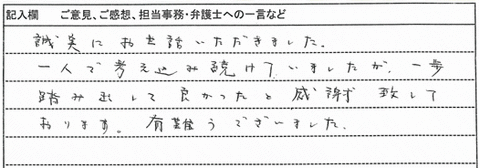 記入欄　ご意見、ご感想、担当事務・弁護士への一言など
誠実にお世話いただきました。
一人で考え込み続けていましたが、一歩
踏み出して良かったと感謝致して
おります。有難うございました.